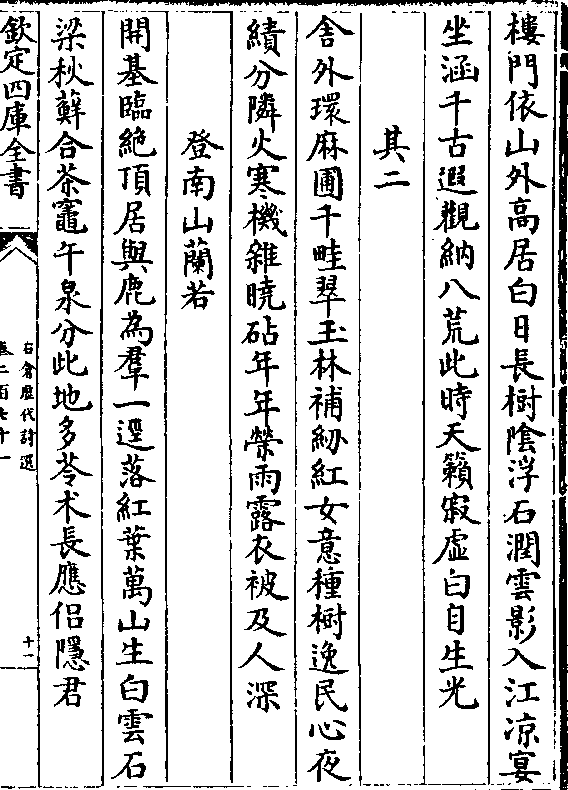 樓門依山外高居白日長樹陰浮石潤雲影入江凉宴
坐涵千古遐觀納八荒此時天籟寂虛白自生光
其二
舎外環麻圃千畦翠玉林補紉紅女意種樹逸民心夜
績分隣火寒機雜曉砧年年榮雨露衣被及人深
登南山蘭若
開基臨絶頂居與鹿為羣一逕落紅葉萬山生白雲石
梁秋蘚合茶竈午泉分此地多苓术長應侣隱君
欽定四庫全書
石倉歷代詩選
十一